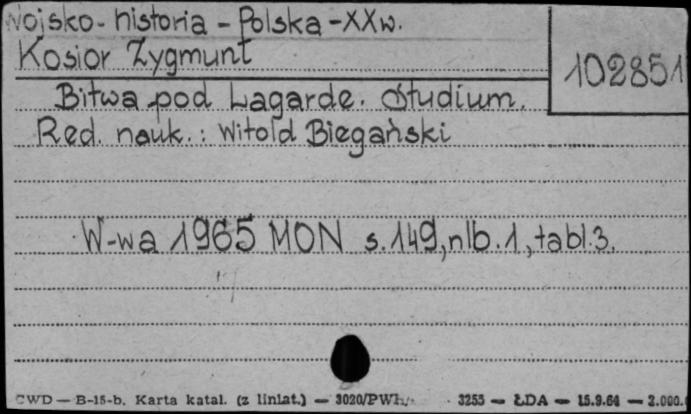 Wojsko - historia - Polska - XX w.
Kosior Zygmunt
102851
Bitwa pod Lagarde. Studium.
Red. nauk.: Witold Biegański
W-wa 1965 MON s. 149, nlb. 1, tabl. 3.
CWD — B-15-b. Karta katal. (z liniat.) — 3020/PWH. 3255 — ŁDA — 15.9.64 — 2.000.